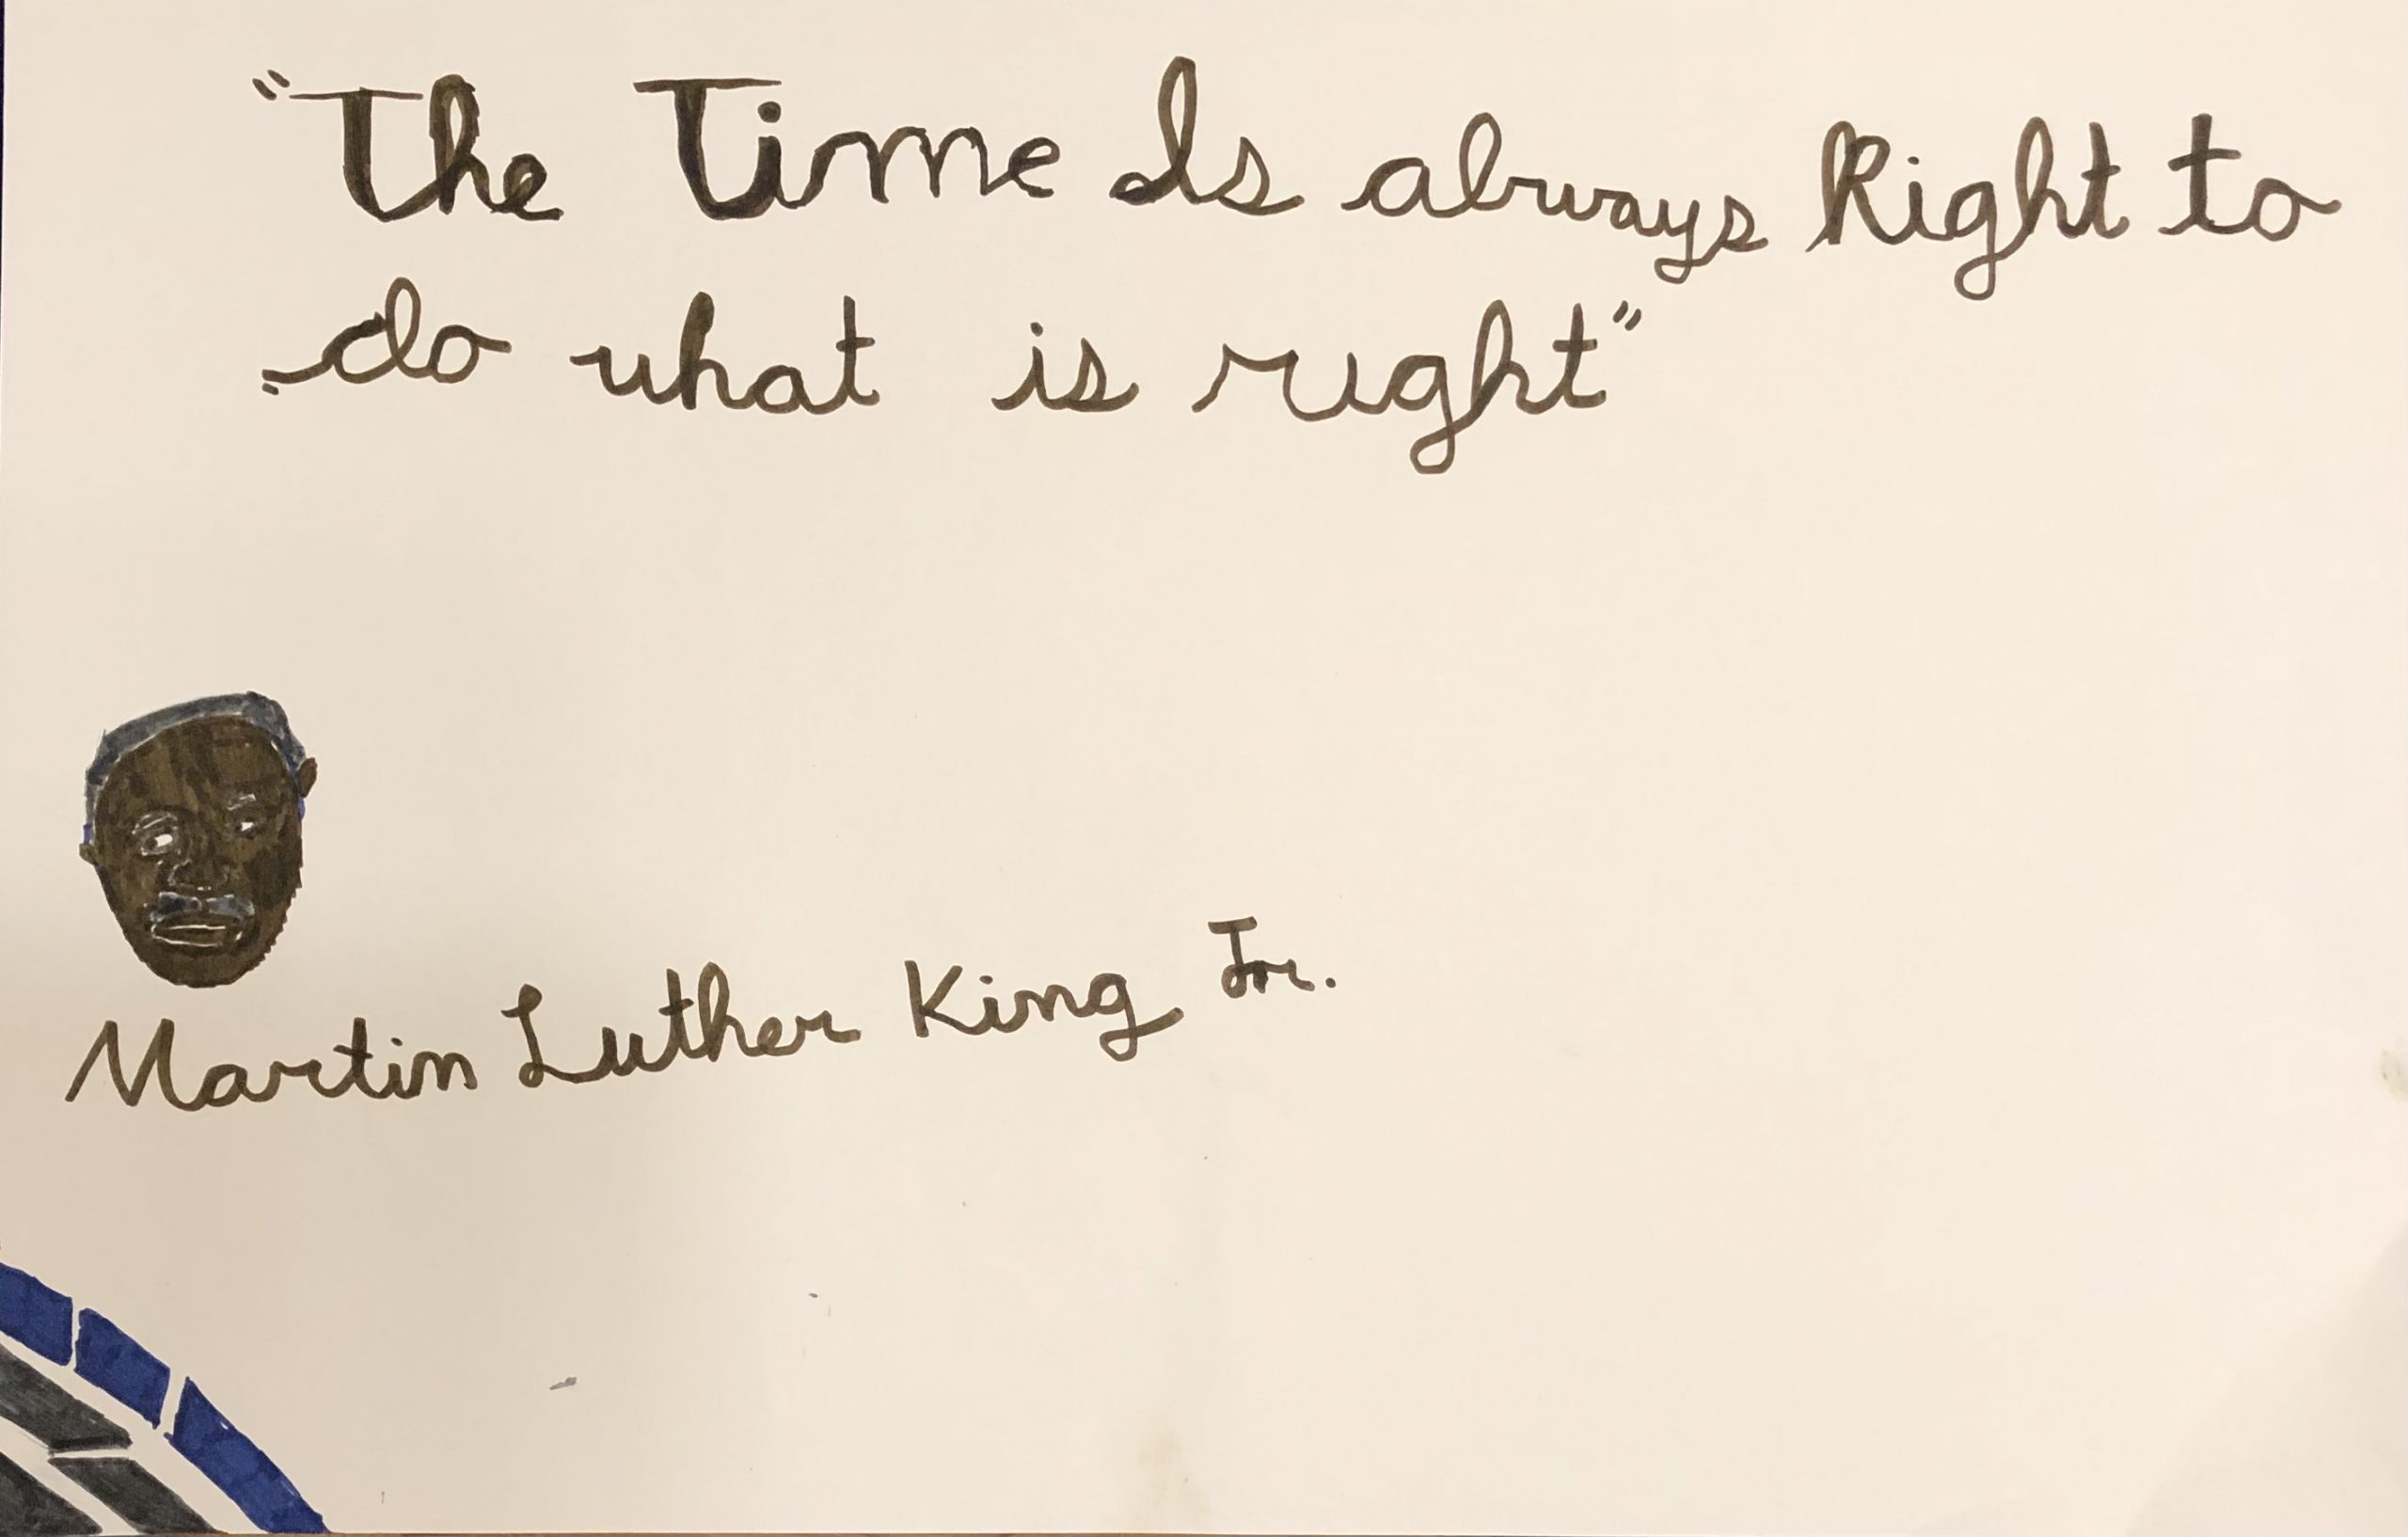 "The Time Is always Right to
do what is right"
Martin Luther King Jr.